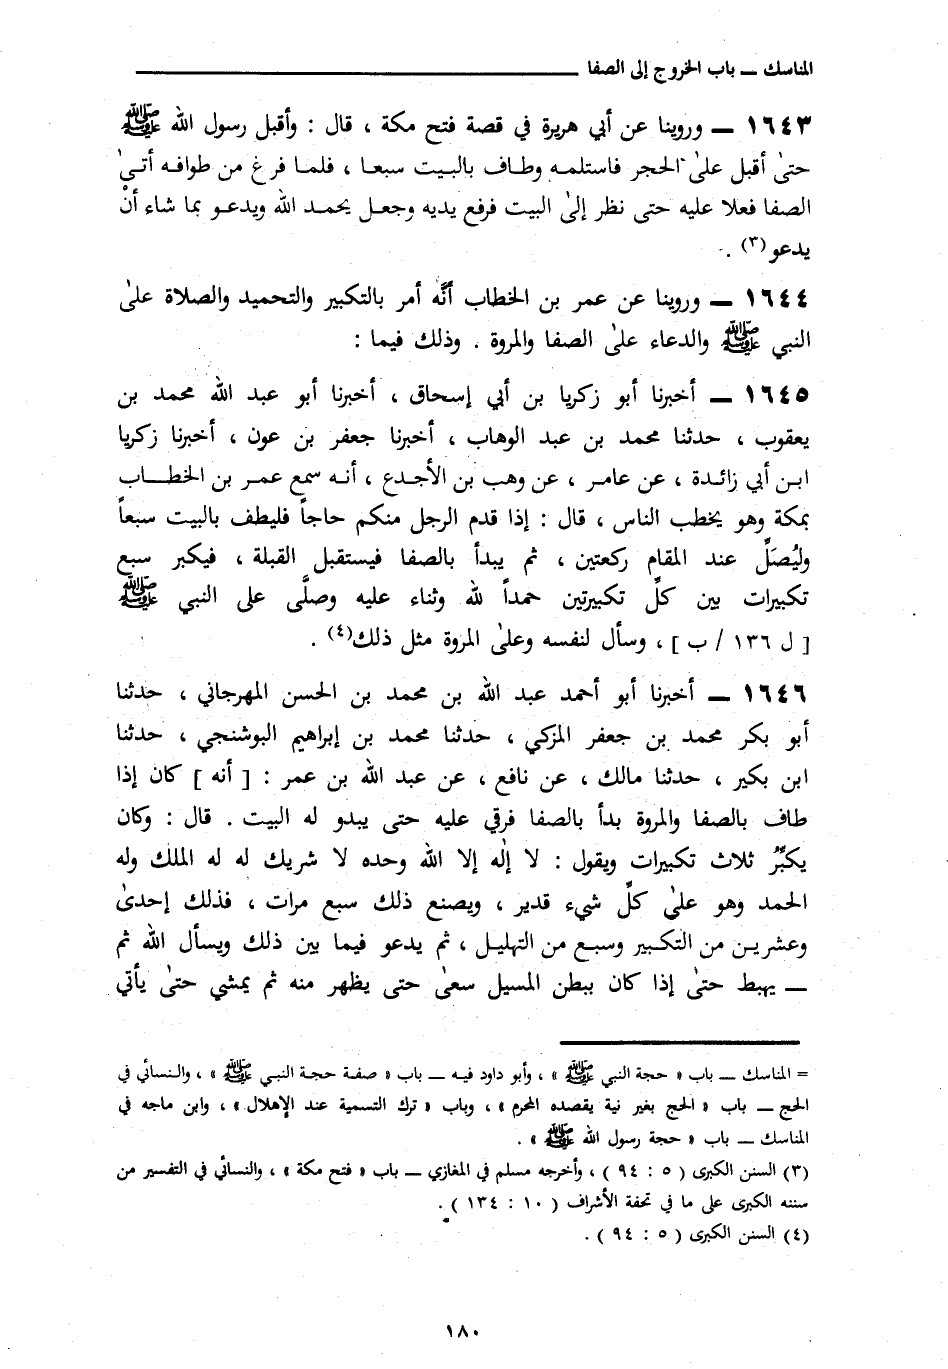 المناسك ــ باب الخروج إلى الصفا
١٦٤٣ ــ وروينا عن أبي هريرة في قصة فتح مكة ، قال : وأقبل رسول الله ﷺ
حتىٰ أقبل علىٰ الحجر فاستلمه وطاف بالبيت سبعا ، فلما فرغ من طوافه أتىٰ
الصفا فعلا عليه حتى نظر إلىٰ البيت فرفع يديه وجعل يحمد الله ويدعو بما شاء أنْ
يدعو(٣) .
١٦٤٤ ــ وروينا عن عمر بن الخطاب أنَّه أمر بالتكبير والتحميد والصلاة علىٰ
النبي ﷺ والدعاء علىٰ الصفا والمروة . وذلك فيما :
١٦٤٥ ــ أخبرنا أبو زكريا بن أبي إسحاق ، أخبرنا أبو عبد الله محمد بن
يعقوب ، حدثنا محمد بن عبد الوهاب ، أخبرنا جعفر بن عون ، أخبرنا زكريا
ابن أبي زائدة ، عن عامر ، عن وهب بن الأجدع ، أنه سمع عمر بن الخطاب
بمكة وهو يخطب الناس ، قال : إذا قدم الرجل منكم حاجاً فليطف بالبيت سبعاً
وليُصَلِّ عند المقام ركعتين ، ثم يبدأ بالصفا فيستقبل القبلة ، فيكبر سبع
تكبيرات بين كلِّ تكبيرتين حمداً لله وثناء عليه وصلَّى على النبي ﷺ
[ ل ١٣٦ / ب ] ، وسأل لنفسه وعلىٰ المروة مثل ذلك(٤) .
١٦٤٦ ــ أخبرنا أبو أحمد عبد الله بن محمد بن الحسن المهرجاني ، حدثنا
أبو بكر محمد بن جعفر المزكي ، حدثنا محمد بن إبراهيم البوشنجي ، حدثنا
ابن بكير ، حدثنا مالك ، عن نافع ، عن عبد الله بن عمر : [ أنه ] كان إذا
طاف بالصفا والمروة بدأ بالصفا فرقي عليه حتى يبدو له البيت . قال : وكان
يكبِّرُ ثلاث تكبيرات ويقول : لا إله إلا الله وحده لا شريك له له الملك وله
الحمد وهو علىٰ كلِّ شيء قدير ، ويصنع ذلك سبع مرات ، فذلك إحدىٰ
وعشرين من التكبير وسبع من التهليل ، ثم يدعو فيما بين ذلك ويسأل الله ثم
ــ يهبط حتىٰ إذا كان ببطن المسيل سعىٰ حتى يظهر منه ثم يمشي حتىٰ يأتي
= المناسك ــ باب « حجة النبي ﷺ » ، وأبو داود فيه ــ باب « صفة حجة النبي ﷺ » ، والنسائي في
الحج ــ باب « الحج بغير نية يقصده المحرم » ، وباب « ترك التسمية عند الإهلال » ، وابن ماجه في
المناسك ــ باب « حجة رسول الله ﷺ » .
(٣) السنن الكبرى ( ٥ : ٩٤ ) ، وأخرجه مسلم في المغازي ــ باب « فتح مكة » ، والنسائي في التفسير من
سننه الكبرى على ما في تحفة الأشراف ( ١٠ : ١٣٤ ) .
(٤) السنن الكبرى ( ٥ : ٩٤ ) .
١٨٠